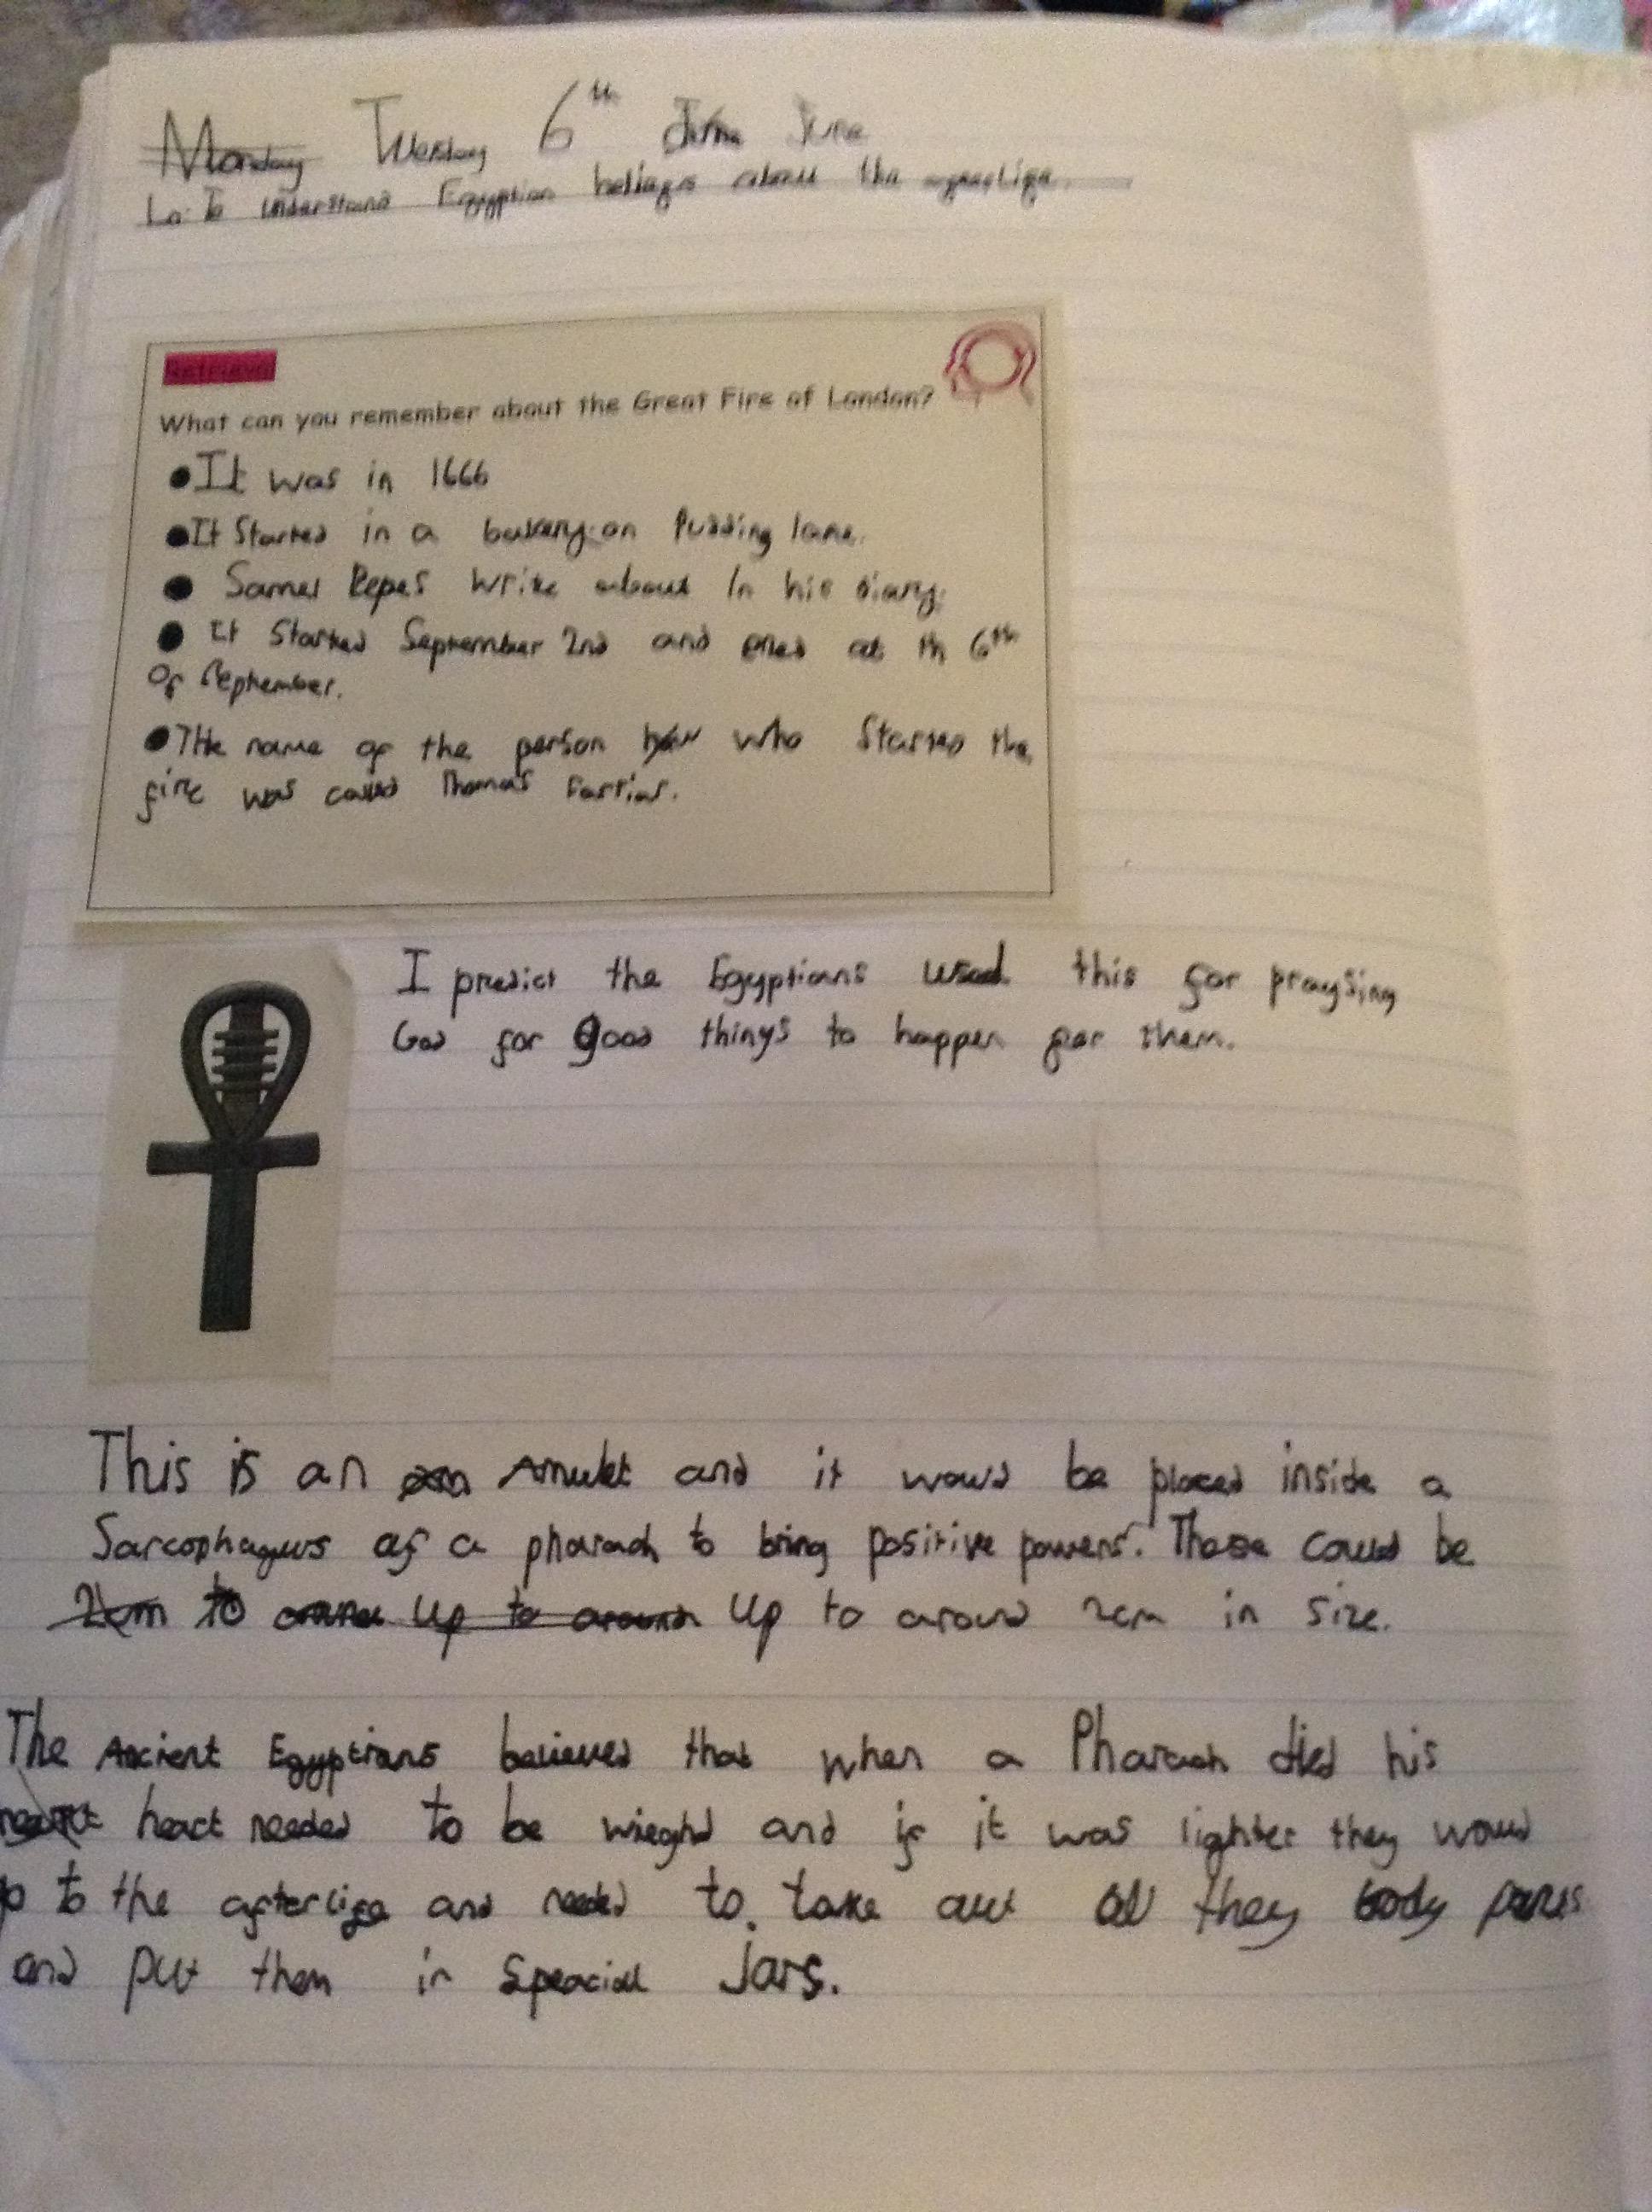 Monday Tuesday 6th June June
Lo: To understand Egyptian beliefs about the afterlife.
Retrieval
What can you remember about the Great Fire of London?
• It was in 1666
• It Started in a bakery on Pudding lane.
• Samel Pepes Write about In his diary.
• It Started September 2nd and ened at th 6th
of September.
• THe name of the person how who Started the
fire was called Thomas Farrior.
I predict the Egyptians used this for praysing
God for good things to happen for them.
This is an am Amulet and it would be placed inside a
Sarcophagus of a pharaoh to bring positive powers. These could be
2cm to around up to around up to around 2cm in size.
The Ancient Egyptians believed that when a Pharaoh died his
heart needed to be wieghd and if it was lighter they would
to the afterlife and needed to take out all they body parts
and put them in Speaciall Jars.